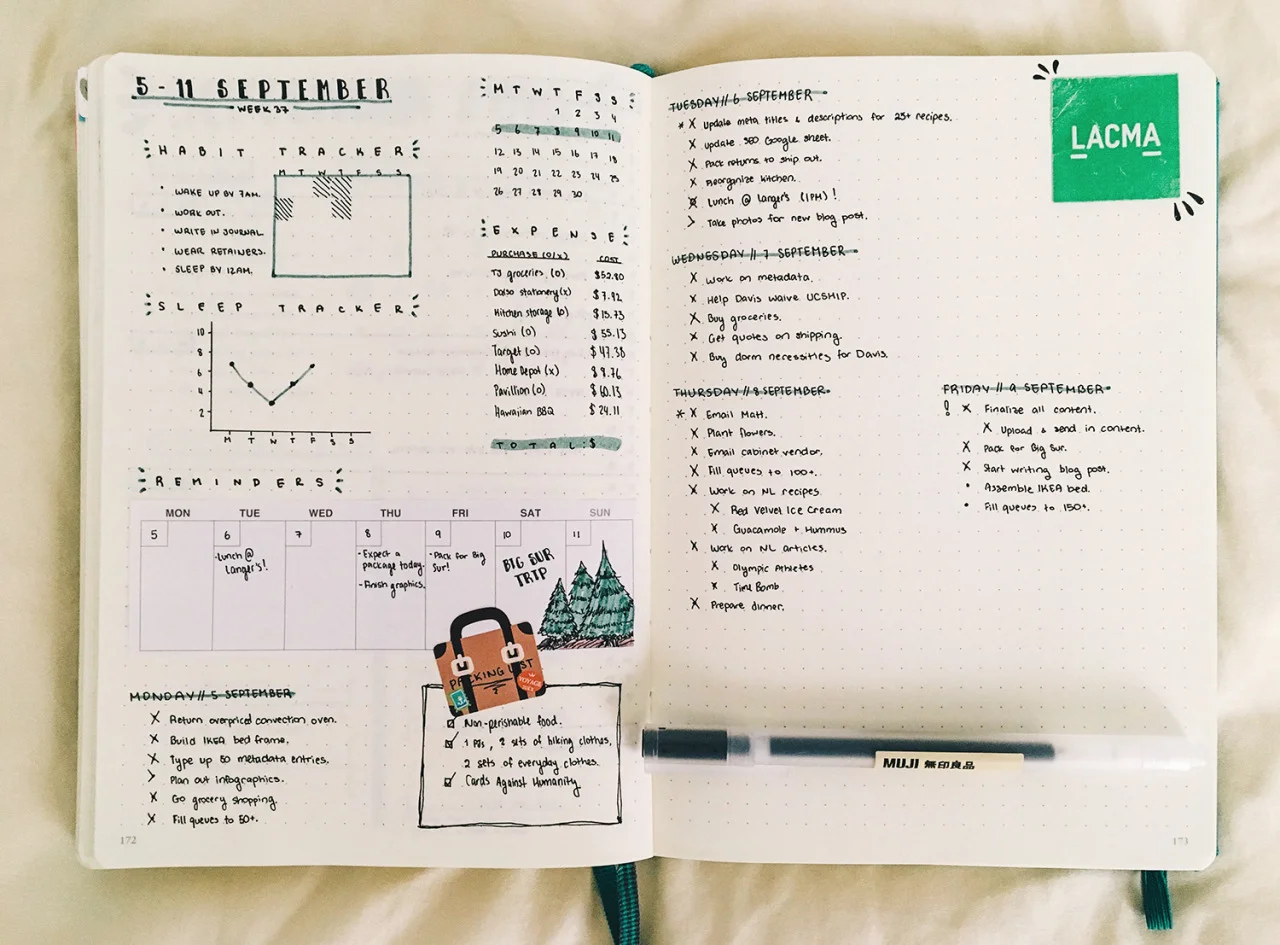 5 - 11 SEPTEMBER
WEEK 37
HABIT TRACKER
M T W T F S S
• WAKE UP BY 7AM.
• WORK OUT.
• WRITE IN JOURNAL
• WEAR RETAINERS.
• SLEEP BY 12AM.
SLEEP TRACKER
10
8
6
4
2
M T W T F S S
M T W T F S S
1 2 3 4
5 6 7 8 9 10 11
12 13 14 15 16 17 18
19 20 21 22 23 24 25
26 27 28 29 30
EXPENSE
PURCHASE (O/X) COST
TJ groceries (O) $52.80
Daiso stationery (X) $7.92
Kitchen storage (O) $15.73
Sushi (O) $55.13
Target (O) $47.38
Home Depot (X) $8.76
Pavillion (O) $60.13
Hawaiian BBQ $24.11
TOTAL: $
REMINDERS
MON TUE WED THU FRI SAT SUN
5 6 7 8 9 10 11
- Lunch @
Langer's!
- Expect a
package today.
- Finish graphics.
- Pack for Big
Sur!
BIG SUR
TRIP
MONDAY // 5 SEPTEMBER
X Return overpriced convection oven.
X Build IKEA bed frame.
X Type up 50 metadata entries.
> Plan out infographics.
X Go grocery shopping.
X Fill queues to 50+.
PACKING LIST
VOYAGE
Non-perishable food.
1 PJs, 2 sets of hiking clothes,
2 sets of everyday clothes.
Cards Against Humanity
172
TUESDAY // 6 SEPTEMBER
* X Update meta titles & descriptions for 25+ recipes.
X Update SEO Google sheet.
X Pack returns to ship out.
X Reorganize kitchen.
X Lunch @ Langer's (1PM)!
> Take photos for new blog post.
LACMA
WEDNESDAY // 7 SEPTEMBER
X Work on metadata.
X Help Davis waive UCSHIP.
X Buy groceries.
X Get quotes on shipping.
X Buy dorm necessities for Davis.
THURSDAY // 8 SEPTEMBER
* X Email Matt.
X Plant flowers.
X Email cabinet vendor.
X Fill queues to 100+.
X Work on NL recipes.
X Red Velvet Ice Cream
X Guacamole + Hummus
X Work on NL articles.
X Olympic Athletes
X Time Bomb
X Prepare dinner.
FRIDAY // 9 SEPTEMBER
! X Finalize all content.
X Upload & send in content.
X Pack for Big Sur.
X Start writing blog post.
• Assemble IKEA bed.
• Fill queues to 150+.
MUJI 無印良品
173